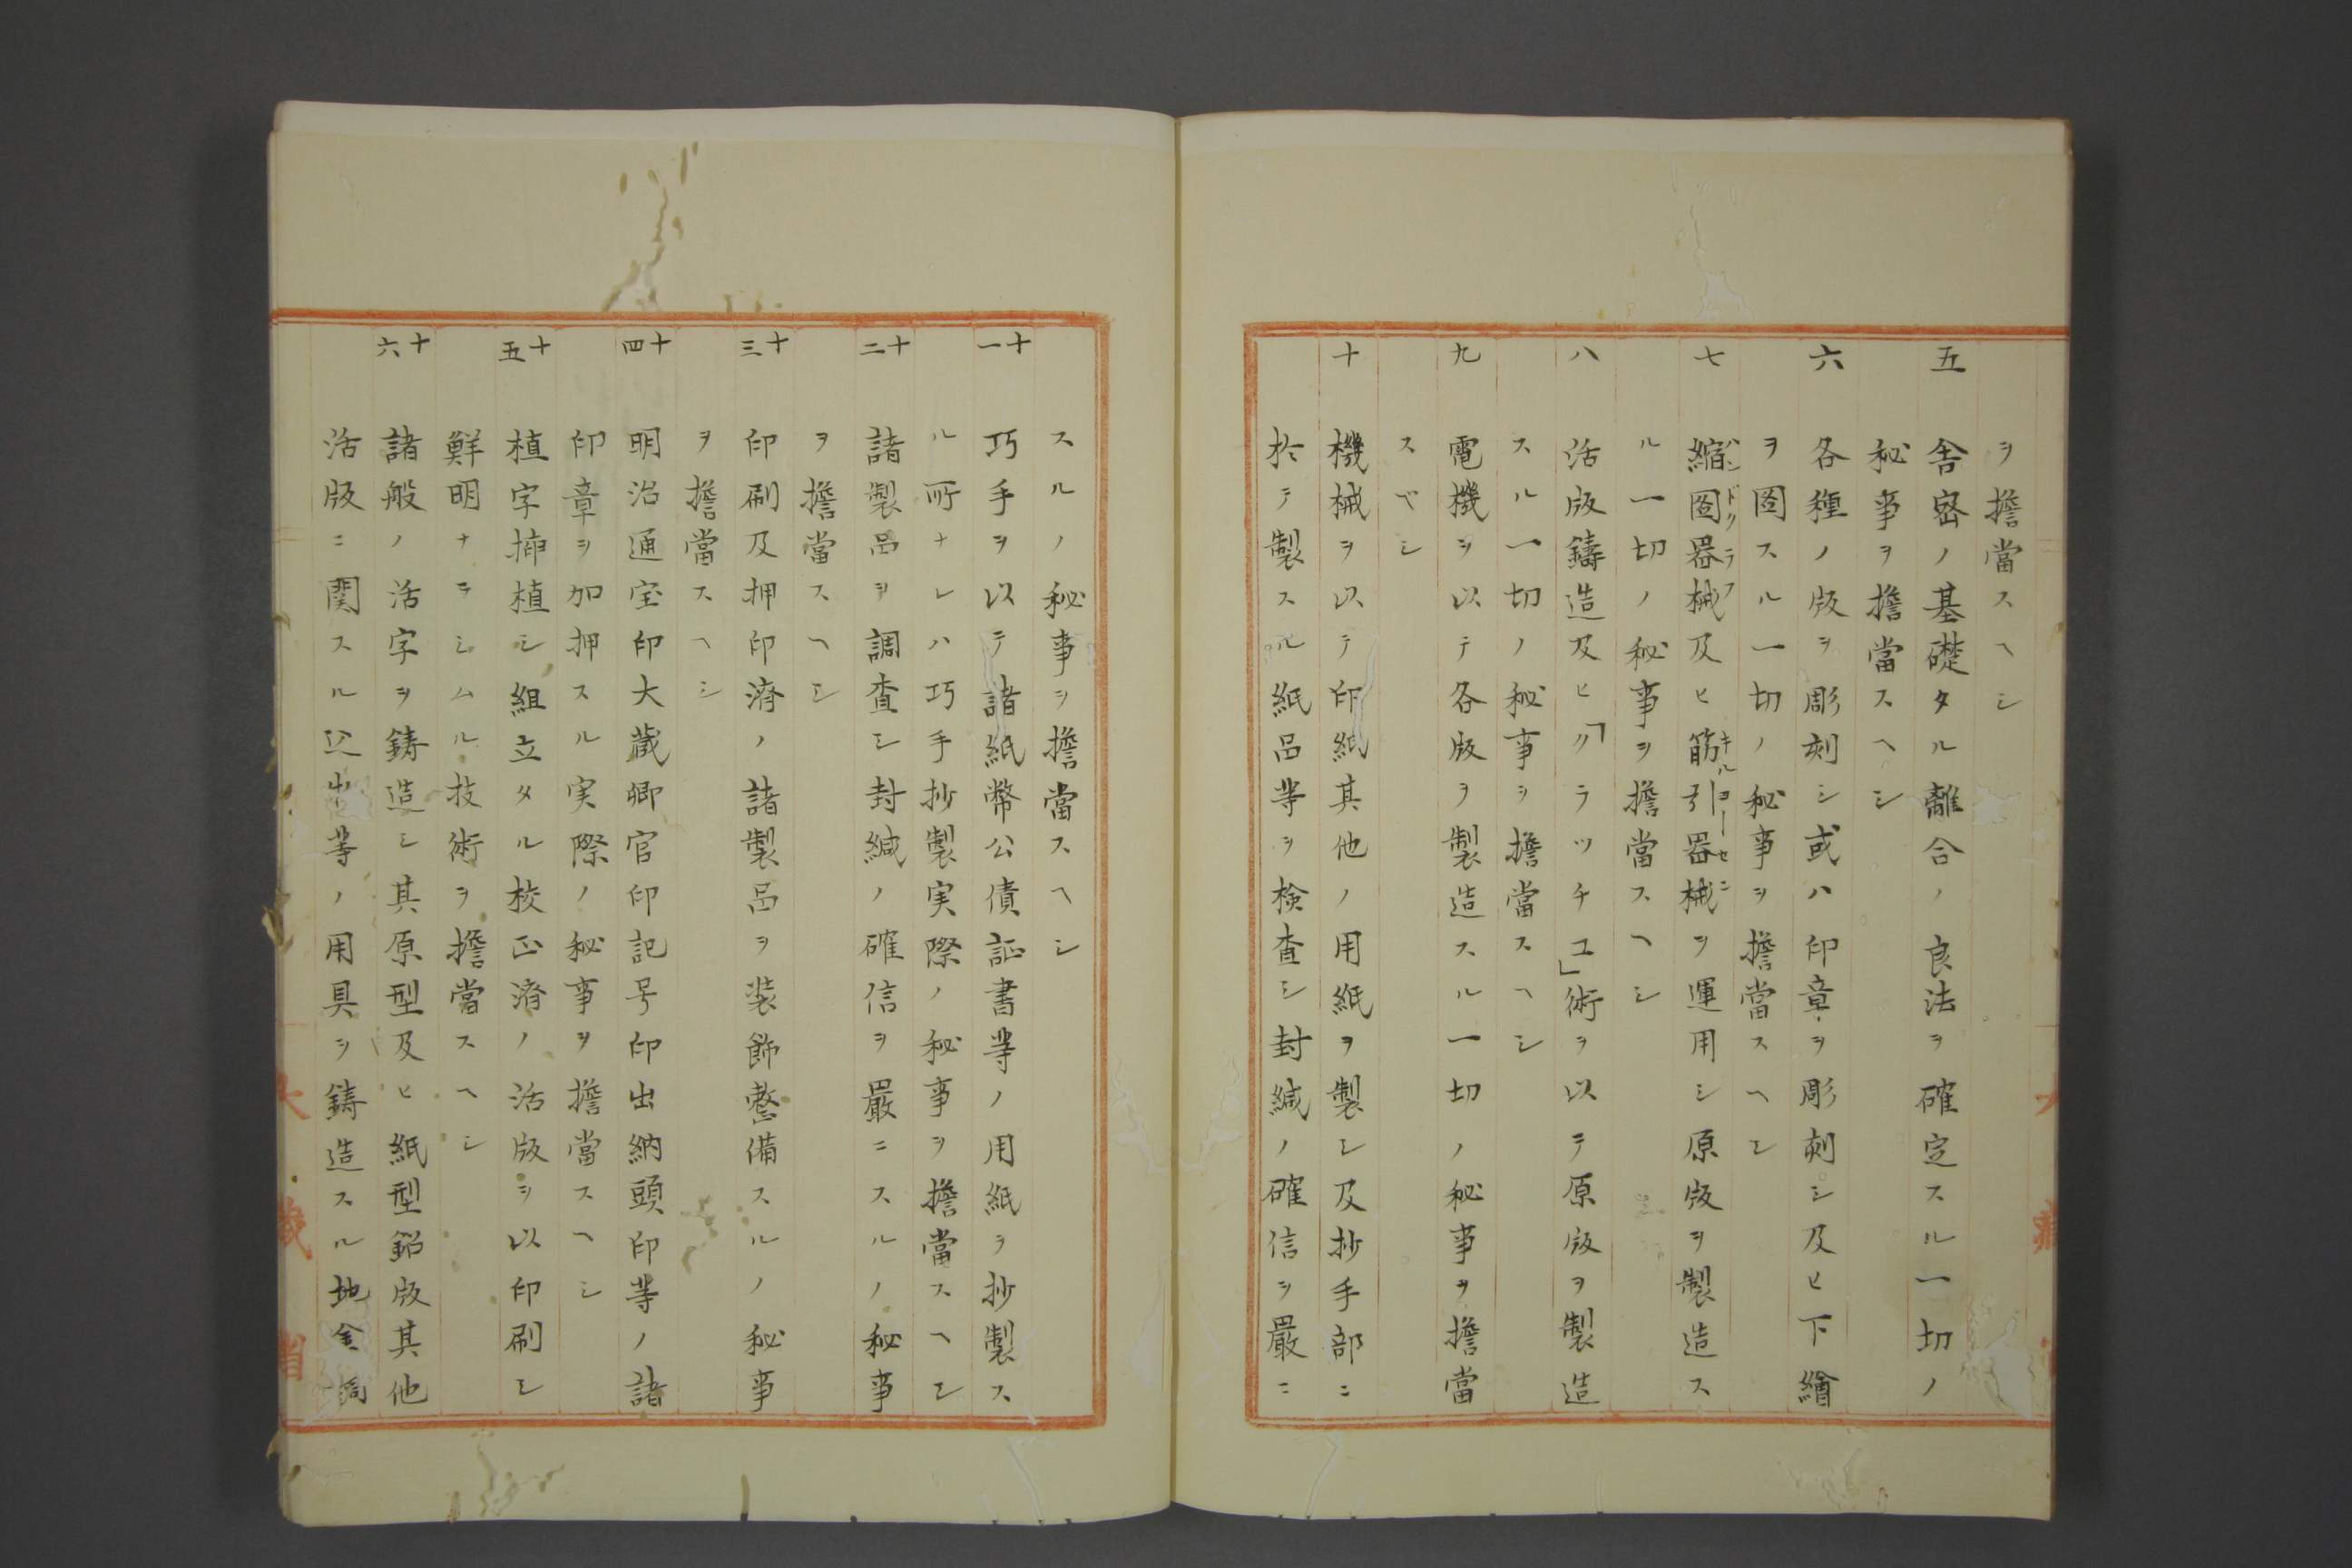 ヲ擔當スヘシ
五 舎密ノ基礎タル離合ノ良法ヲ確定スル一切ノ
秘事ヲ擔當スヘシ
六 各種ノ版ヲ彫刻シ或ハ印章ヲ彫刻シ及ヒ下繪
ヲ圖スル一切ノ秘事ヲ擔當スヘシ
七 縮圖器械及ヒ筋引器械ヲ運用シ原版ヲ製造ス
ル一切ノ秘事ヲ擔當スヘシ
八 活版鑄造及ヒ「グラッチユ」術ヲ以テ原版ヲ製造
スル一切ノ秘事ヲ擔當スヘシ
九 電機ヲ以テ各版ヲ製造スル一切ノ秘事ヲ擔當
スベシ
十 機械ヲ以テ印紙其他ノ用紙ヲ製シ及抄手部ニ
於テ製スル紙品等ヲ検査シ封緘ノ確信ヲ嚴ニ
スルノ秘事ヲ擔當スヘシ
十一 巧手ヲ以テ諸紙幣公債証書等ノ用紙ヲ抄製ス
ル所ナレハ巧手抄製実際ノ秘事ヲ擔當スヘシ
十二 諸製品ヲ調査シ封緘ノ確信ヲ嚴ニスルノ秘事
ヲ擔當スヘシ
十三 印刷及押印濟ノ諸製品ヲ装飾整備スルノ秘事
ヲ擔當スヘシ
十四 明治通宝印大蔵卿官印記号印出納頭印等ノ諸
印章ヲ加押スル実際ノ秘事ヲ擔當スヘシ
十五 植字挿植シ組立タル校正濟ノ活版ヲ以印刷シ
鮮明ナラシムル技術ヲ擔當スヘシ
十六 諸般ノ活字ヲ鋳造シ其原型及ヒ紙型鉛版其他
活版ニ関スル等ノ用具ヲ鋳造スル地金
大蔵省